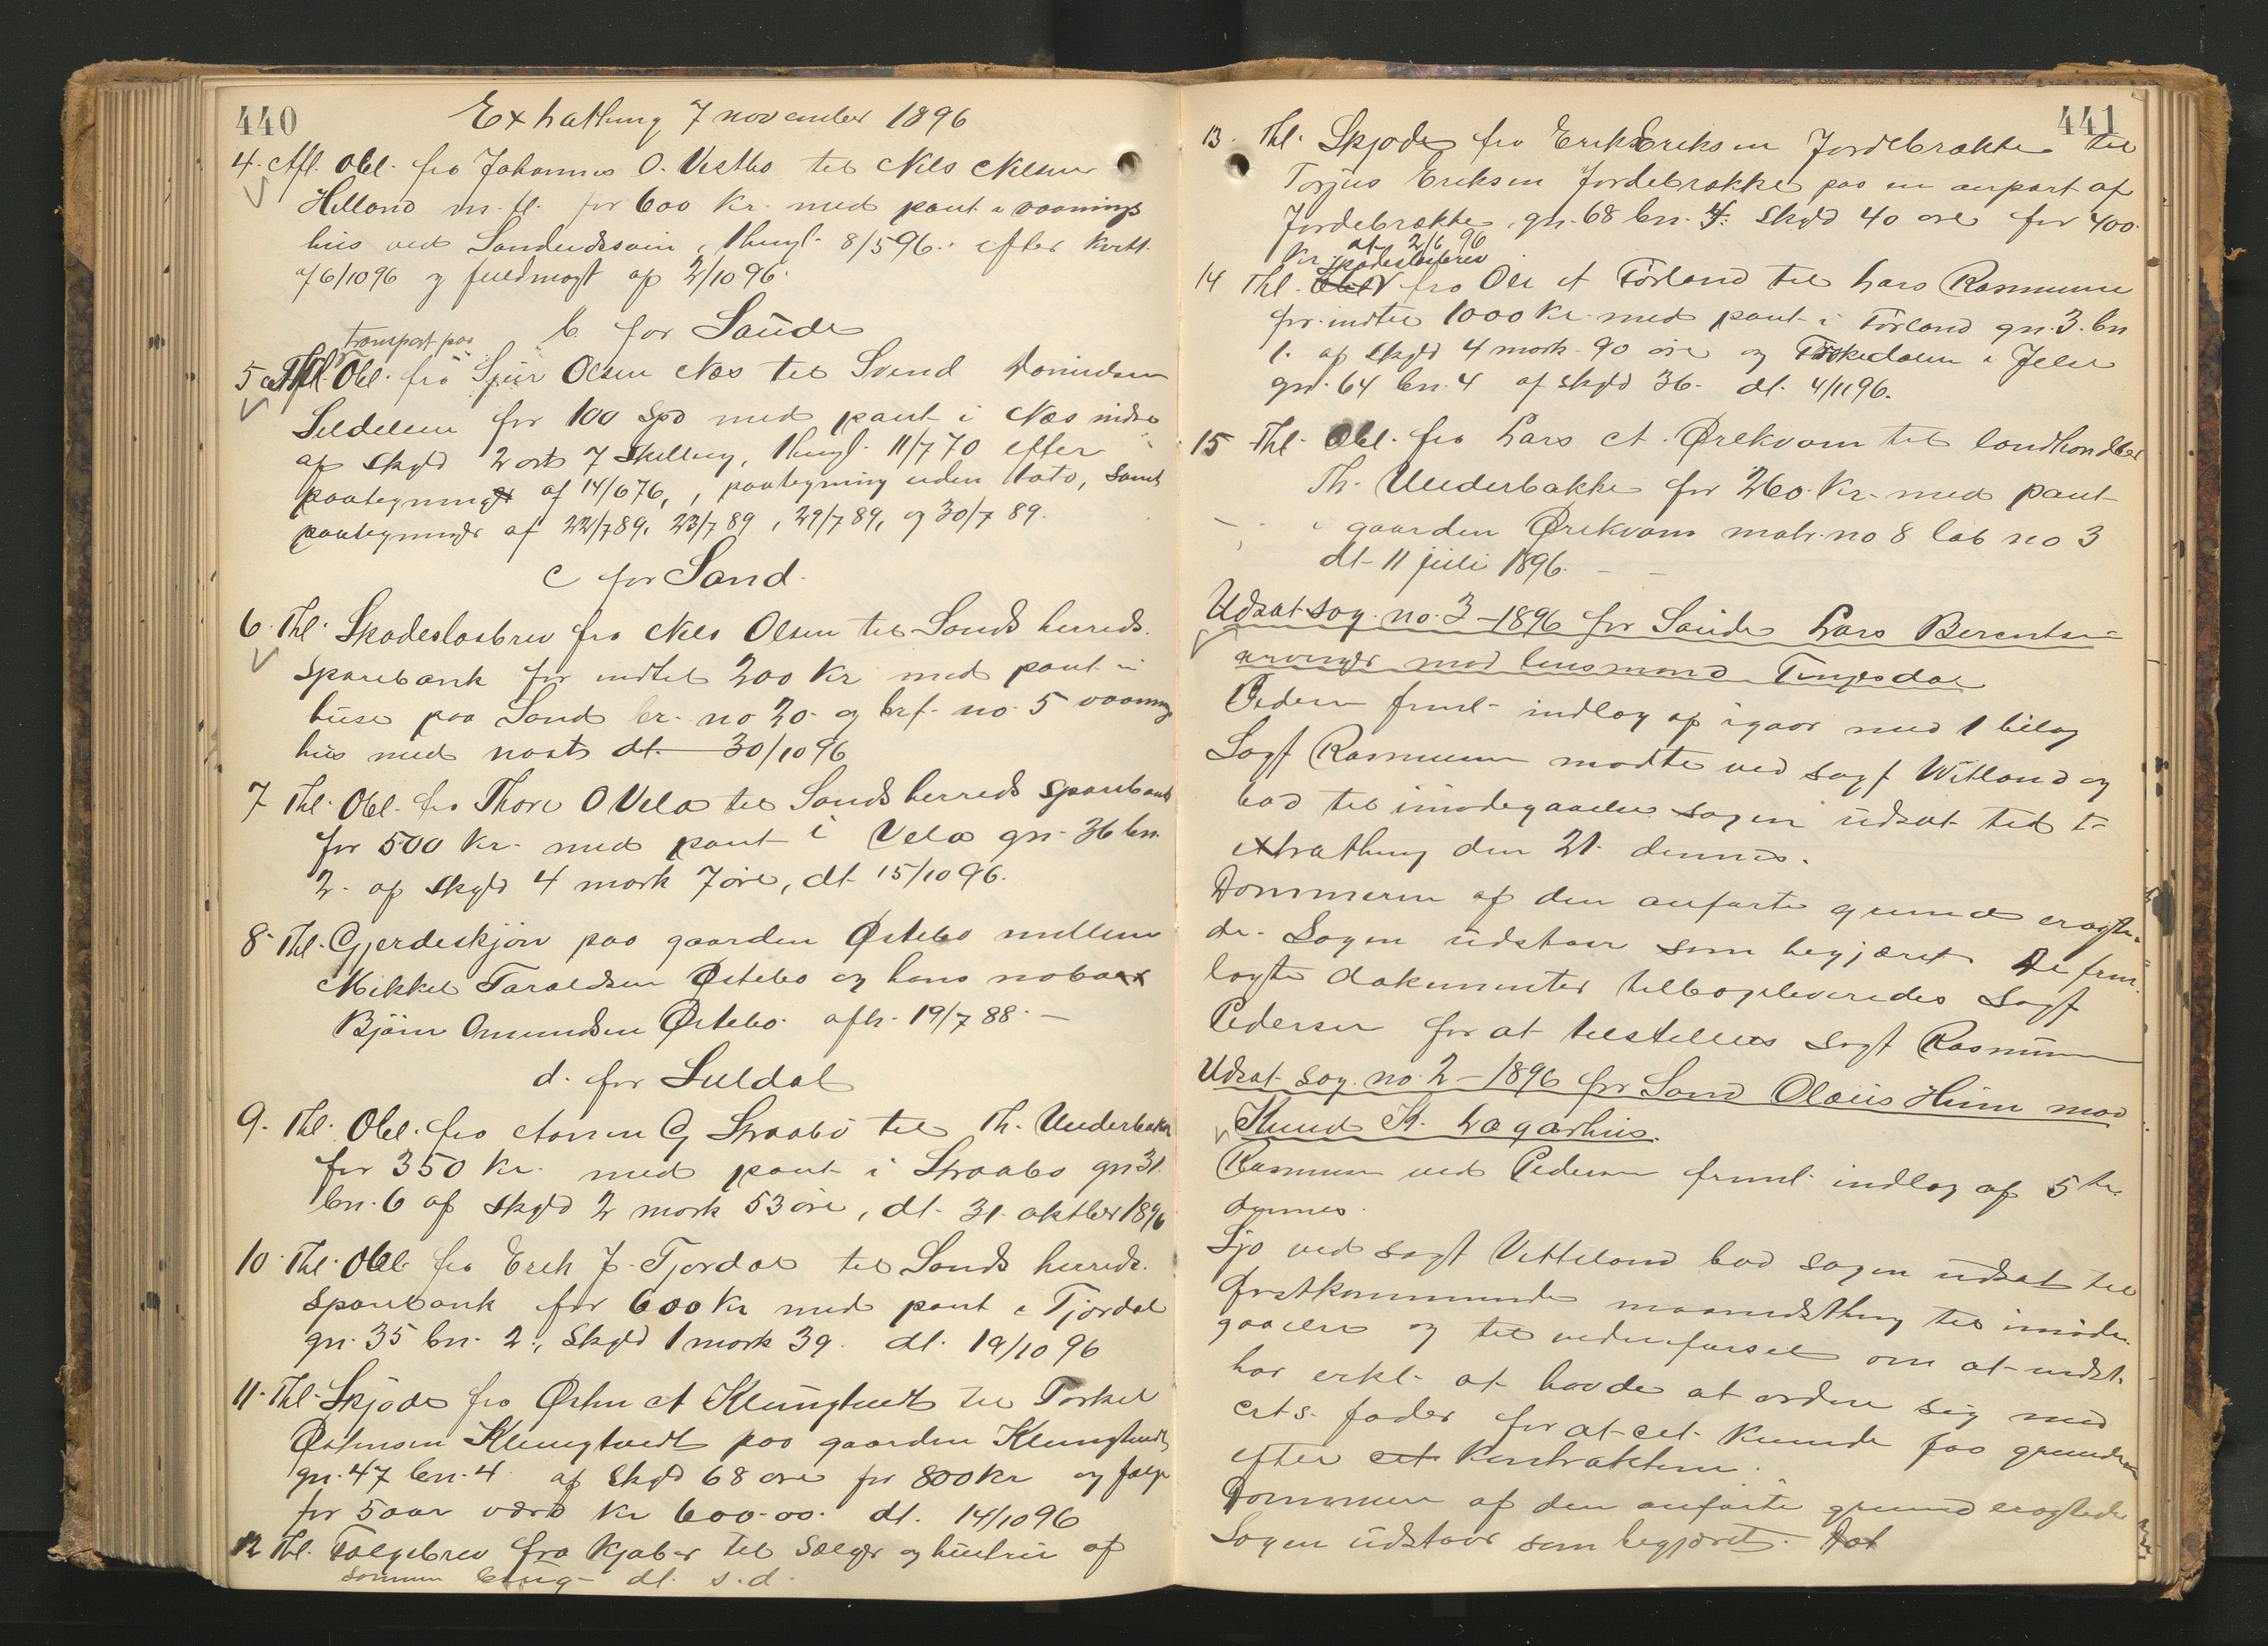 440
Extrathing 7 november 1896
4. Afl. Obl. fra Johannes O. Vestbø til Nils Nilsen
Helland m. fl. for 600 Kr. med pant i vaanings
hus ved Sandeidsøien, thingl. 8/5 96. efter kvitt.
af 6/10 96 og fuldmagt af 2/10 96.
b. for Saude
transport paa
5 Thl. Obl. fra Sjur Olsen Næs til Svend Danielsen
for 100 Spd med pant i Næs nedre
af skyld 2 ort 7 skilling, thingl. 11/7 70 efter
paategning af 14/6 76, , paategning uden dato, samt
paategninger af 22/7 89, 23/7 89, 29/7 89, og 30/7 89.
c for Sand.
6. Thl. Skadesløsbrev fra Nils Olsen til Sands herreds.
sparebank for indtil 200 Kr med pant i
huse paa Sand br. no 20. og brf. no. 5 vaanings
hus med nøst dt. 30/10 96
7 Thl. Obl. fra Thore O Vela til Sands herreds sparebank
for 500 Kr. med pant i Vela gn. 36 bn.
2. af skyld 4 mark 7 øre, dt. 15/10 96.
8. Thl. Gjerdeskjøn paa gaarden Østebø mellem
Mikkel Taraldsen Østebø og hans naboer
Bjørn Omundsen Østebø. afh. 19/7 88. —
d. for Suldal
9. Thl. Obl. fra G Straabø til Th. Underbakke
for 350 Kr. med pant i Straabø gn 31.
bn. 6 af skyld 2 mark 53 øre, dt. 31. oktbr 1896
10. Thl. Obl. fra Erik J. Tjordal til Sands herreds.
sparebank for 600 Kr med pant i Tjordal
gn. 35 bn. 2., skyld 1 mark 39. dt. 19/10 96
11. Thl. Skjøde fra Østen A Klungtvedt til Torkel
Østensen Klungtvedt paa gaarden Klungtvedt
gn. 47 bn. 4. af skyld 68 øre for 800 Kr og følge
for 5 aar værd Kr 600.00. dt. 14/10 96
12 Thl. Følgebrev fra Kjøber til Sælger og hustru af
samme brug dt. s.d.
441
13. Thl. Skjøde fra Erik Eriksen Jordebrække til
Torjus Eriksen Jordebrække paa en anpart af
Jordebrække, gn. 68 bn. 4: skyld 40 øre for 400.
Kr dt. 2/6 96
skadesløsbrev
14 Thl. fra Ole A Førland til Lars Rasmussen
for indtil 1000 Kr. med pant i Førland gn. 3. bn
1. af skyld 4 mark 90 øre og i Jelse
gn. 64 bn. 4 af skyld 36. dt. 4/11 96.
15 Thl. Obl. fra Lars A. Ørekvam til landhandler
Th. Underbakke for 260. Kr. med pant
i gaarden Ørekvam matr. no 8 løb no 3
dt. 11 juli 1896. — —
Udsat sag. no. 3 – 1896 for Saude Lars Berentsens
arvinger mod lensmand Tengesdal
Pedersen freml. indlæg af igaar med 1 bilag
Sagf Rasmussen mødte ved sagf Witland og
bad til imødegaaelse sagen udsat til
extrathing den 21. dennes.
Dommeren af den anførte grund eragte-
de. Sagen udstaar som begjæret. De frem-
lagte dokumenter tilbageleveredes Sagf
Pedersen for at tilstilles Sagf Rasmussen
Udsat sag. no. 2 – 1896 for Sand Olaus Hiim mod
Knud K. Lagarhus.
Rasmussen ved Pedersen freml. indlæg af 5te
dennes.
Sjo ved sagf Vitteland bad sagen udsat til
førstkommende maanedsthing til imøde-
gaaelse og til vidneførsel om at indst.
har erkl. at havde at ordne sig med
cit s. fader for at cit. kunde faa grunden
efter cit. kontrakten.
Dommeren af den anførte grund eragtede
Sagen udstaar som begjæret.